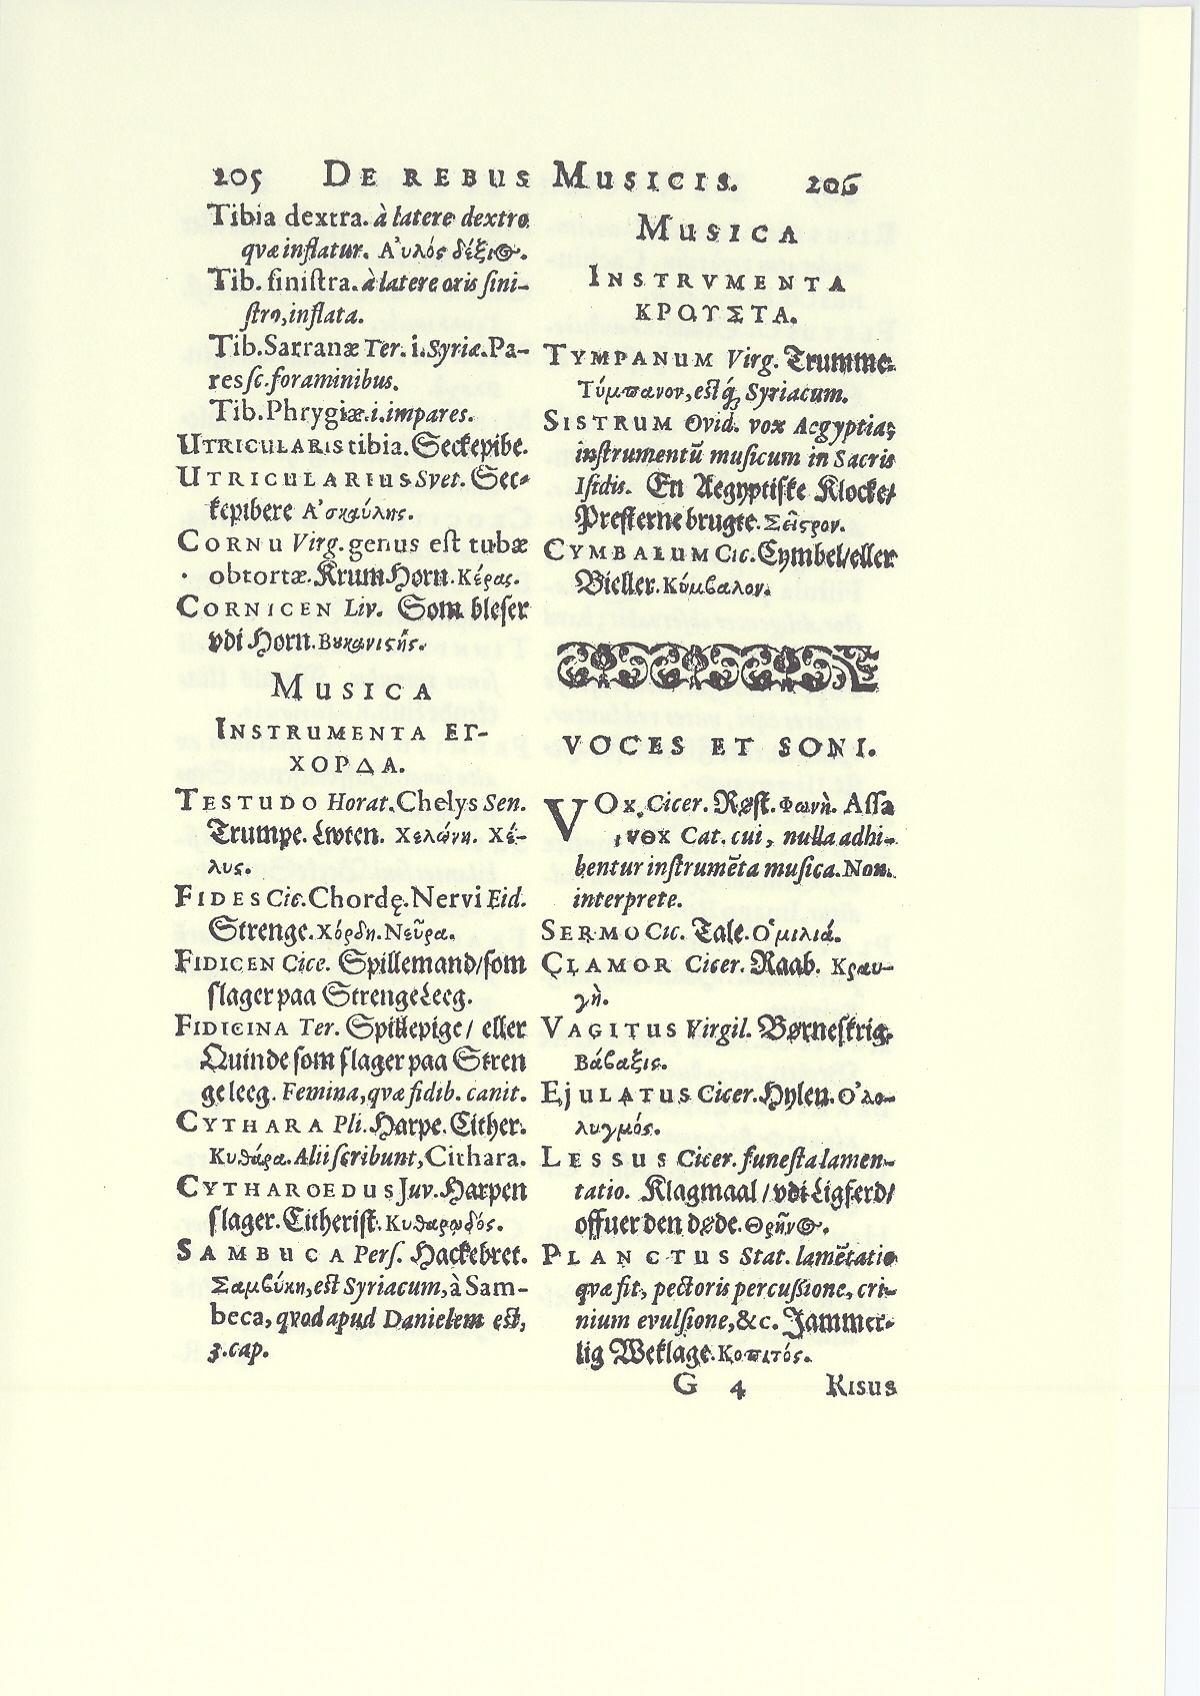 205 DE REBUS MUSICIS. 206
Tibia dextra. à latere dextro
qvæ inflatur. Αʼυλός δέξιος.
Tib. siniſtra. à latere oris ſini-
ſtro, inflata.
Tib. Sarranæ Ter. i. Syriæ. Pa-
res ſc. foraminibus.
Tib. Phrygiæ. i. impares.
UTRICULARIS tibia. Seckepibe.
UTRICULARIUS Svet. Sec-
kepibere Αʼσκαύλης.
CORNU Virg. genus eſt tubæ
obtortæ. Krum Horn. Κέρας.
CORNICEN Liv. Som bleſer
vdi Horn. Βυκανιςής.
MUSICA
INSTRUMENTA ΕΓ-
ΧΟΡΔΑ.
TESTUDO Horat. Chelys Sen.
Trumpe. Lwten. Χελώνη. Χέ-
λυς.
FIDES Cic. Chordę. Nervi Eid.
Strenge. Χόρδη. Νεῦρα.
FIDICEN Cice. Spillemand/ ſom
ſlager paa Strenge Leeg.
FIDICINA Ter. Spillepige/ eller
Quinde ſom ſlager paa Stren
geleeg. Femina, qvæ fidib. canit.
CYTHARA Pli. Harpe. Cither.
Κυθάρα. Alii ſcribunt, Cithara.
CYTHAROEDUS Juv. Harpen
ſlager. Citheriſt. Κυθαρῳδός.
SAMBUCA Perſ. Hackebret.
Σαμβύκη, eſt Syriacum, à Sam-
beca, qvod apud Danielem eſt,
3. cap.
MUSICA
INSTRVMENTA
ΚΡΟΥΣΤΑ.
TYMPANUM Virg. Trumme.
Τύμπανον, eſt q́; Syriacum.
SISTRUM Ovid. vox Aegyptia;
inſtrumentũ muſicum in Sacris
Iſidis. En Aegyptiſke Klocke/
Preſterne brugte. Σεῖςρον.
CYMBALUM Cic. Cymbel/ eller
Bieller. Κύμβαλον.
VOCES ET SONI.
VOX. Cicer. Røſt. Φωνὴ. Aſſa
vox Cat. cui, nulla adhi-
bentur inſtrumẽta muſica. Non.
interprete.
SERMO Cic. Tale. Οʽμιλιά.
CLAMOR Cicer. Raab. Κραυ-
γὴ.
VAGITUS Virgil. Børneſkrig.
Βάβαξις.
EJULATUS Cicer. Hylen. Οʼλο-
λυγμός.
LESSUS Cicer. funeſta lamen-
tatio. Klagmaal/ vdi Ligferd/
offuer den døde. Θρῆνος.
PLANCTUS Stat. lamẽtatio
qvæ fit, pectoris percuſsione, cri-
nium evulſione, &c. Jammer-
lig Weklage. Κοπιτός.
G 4 RISUS